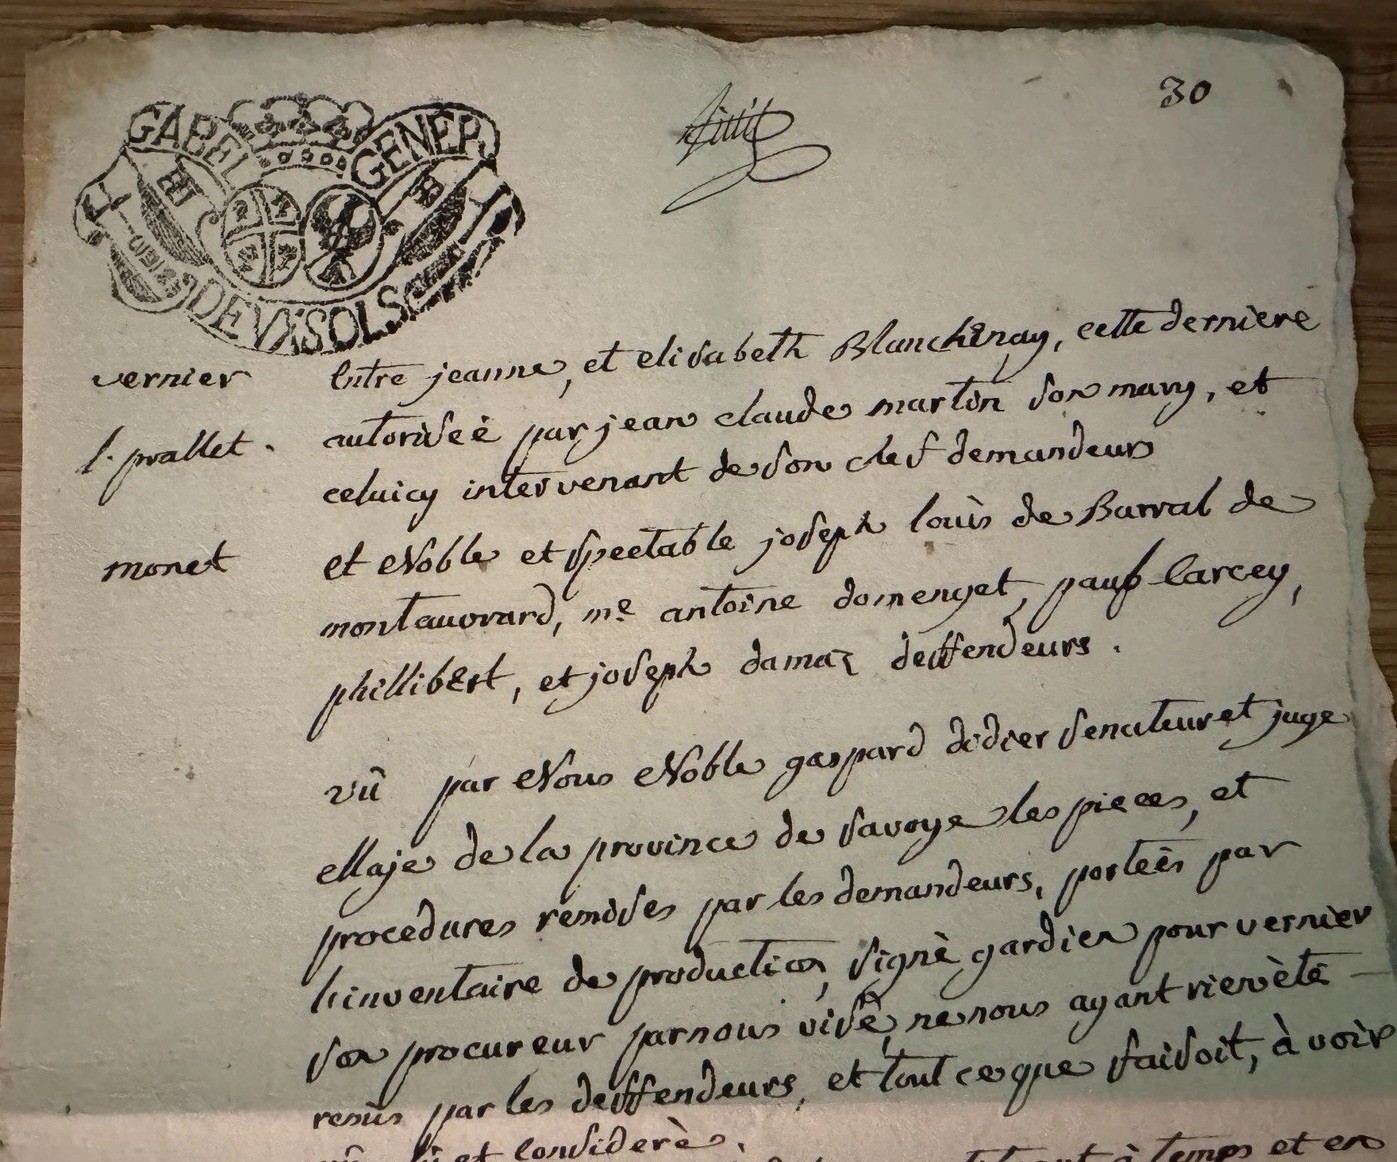 30
GABEL GENER
DEVX SOLS
vernier
l. prallet.
monet
Entre jeanne, et elisabeth Blanchenay, cette derniere
autoriseè par jean claude martin son mary, et
celuicy intervenant de son chef demandeurs
et Noble et spectable joseph louis de Barral de
montauvrard, me antoine domenget, paul Carcey,
phillibert, et joseph damaz deffendeurs.
vû par Nous Noble gaspard didier senateur et juge
Maje de la province de savoye les pieces, et
procedures remises par les demandeurs, porteès par
l'inventaire de production, signè gardien pour vernier
son procureur par nous visè, ne nous ayant rien ètè
remis par les deffendeurs, et tout ce que faisoit, à voir
et considerè.
à temps et en